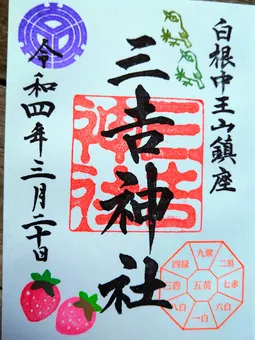 白根中王山鎮座
三吉神社
令和四年三月二十日
九紫
四緑
二黒
三碧
五黄
七赤
八白
六白
一白